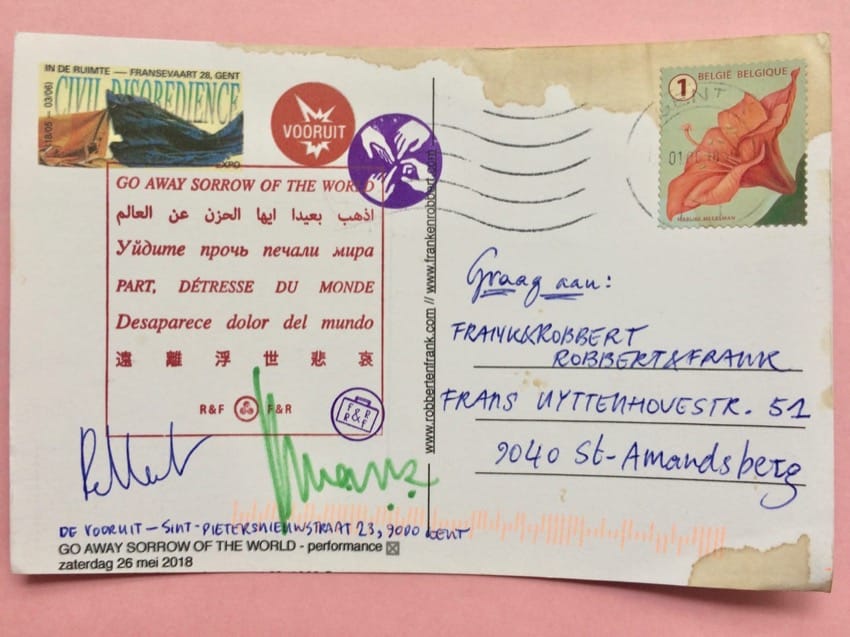 IN DE RUIMTE — FRANSEVAART 28, GENT
(18/05 — 03/06)
CIVIL DISOBEDIENCE
EXPO
VOORUIT
GO AWAY SORROW OF THE WORLD
اذهب بعيدا ايها الحزن عن العالم
Уйдите прочь печали мира
PART, DÉTRESSE DU MONDE
Desaparece dolor del mundo
遠離浮世悲哀
R&F F&R
F&R
R&F
DE VOORUIT — SINT-PIETERSNIEUWSTRAAT 23, 9000 GENT
GO AWAY SORROW OF THE WORLD - performance ☒
zaterdag 26 mei 2018
www.robbertenfrank.com // www.frankenrobbert.com
1 BELGIË BELGIQUE
GENT
MARIJKE MEERSMAN
Graag aan:
FRANK&ROBBERT
ROBBERT&FRANK
FRANS UYTTENHOVESTR. 51
9040 St-Amandsberg